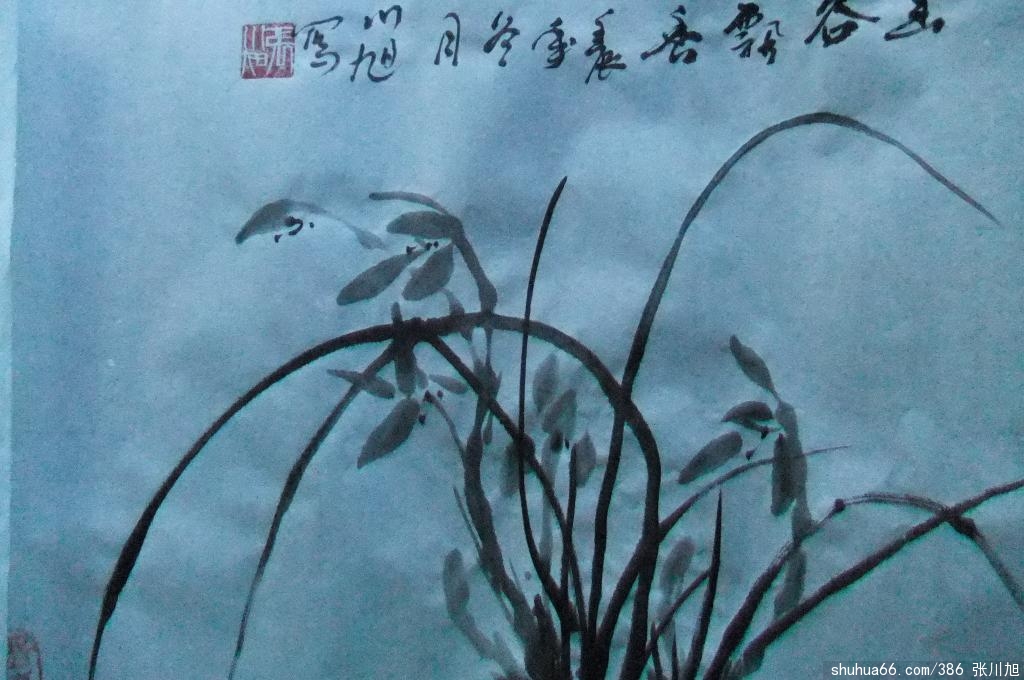 幽谷飘香 辰年冬月 川旭写
shuhua66.com/386 张川旭